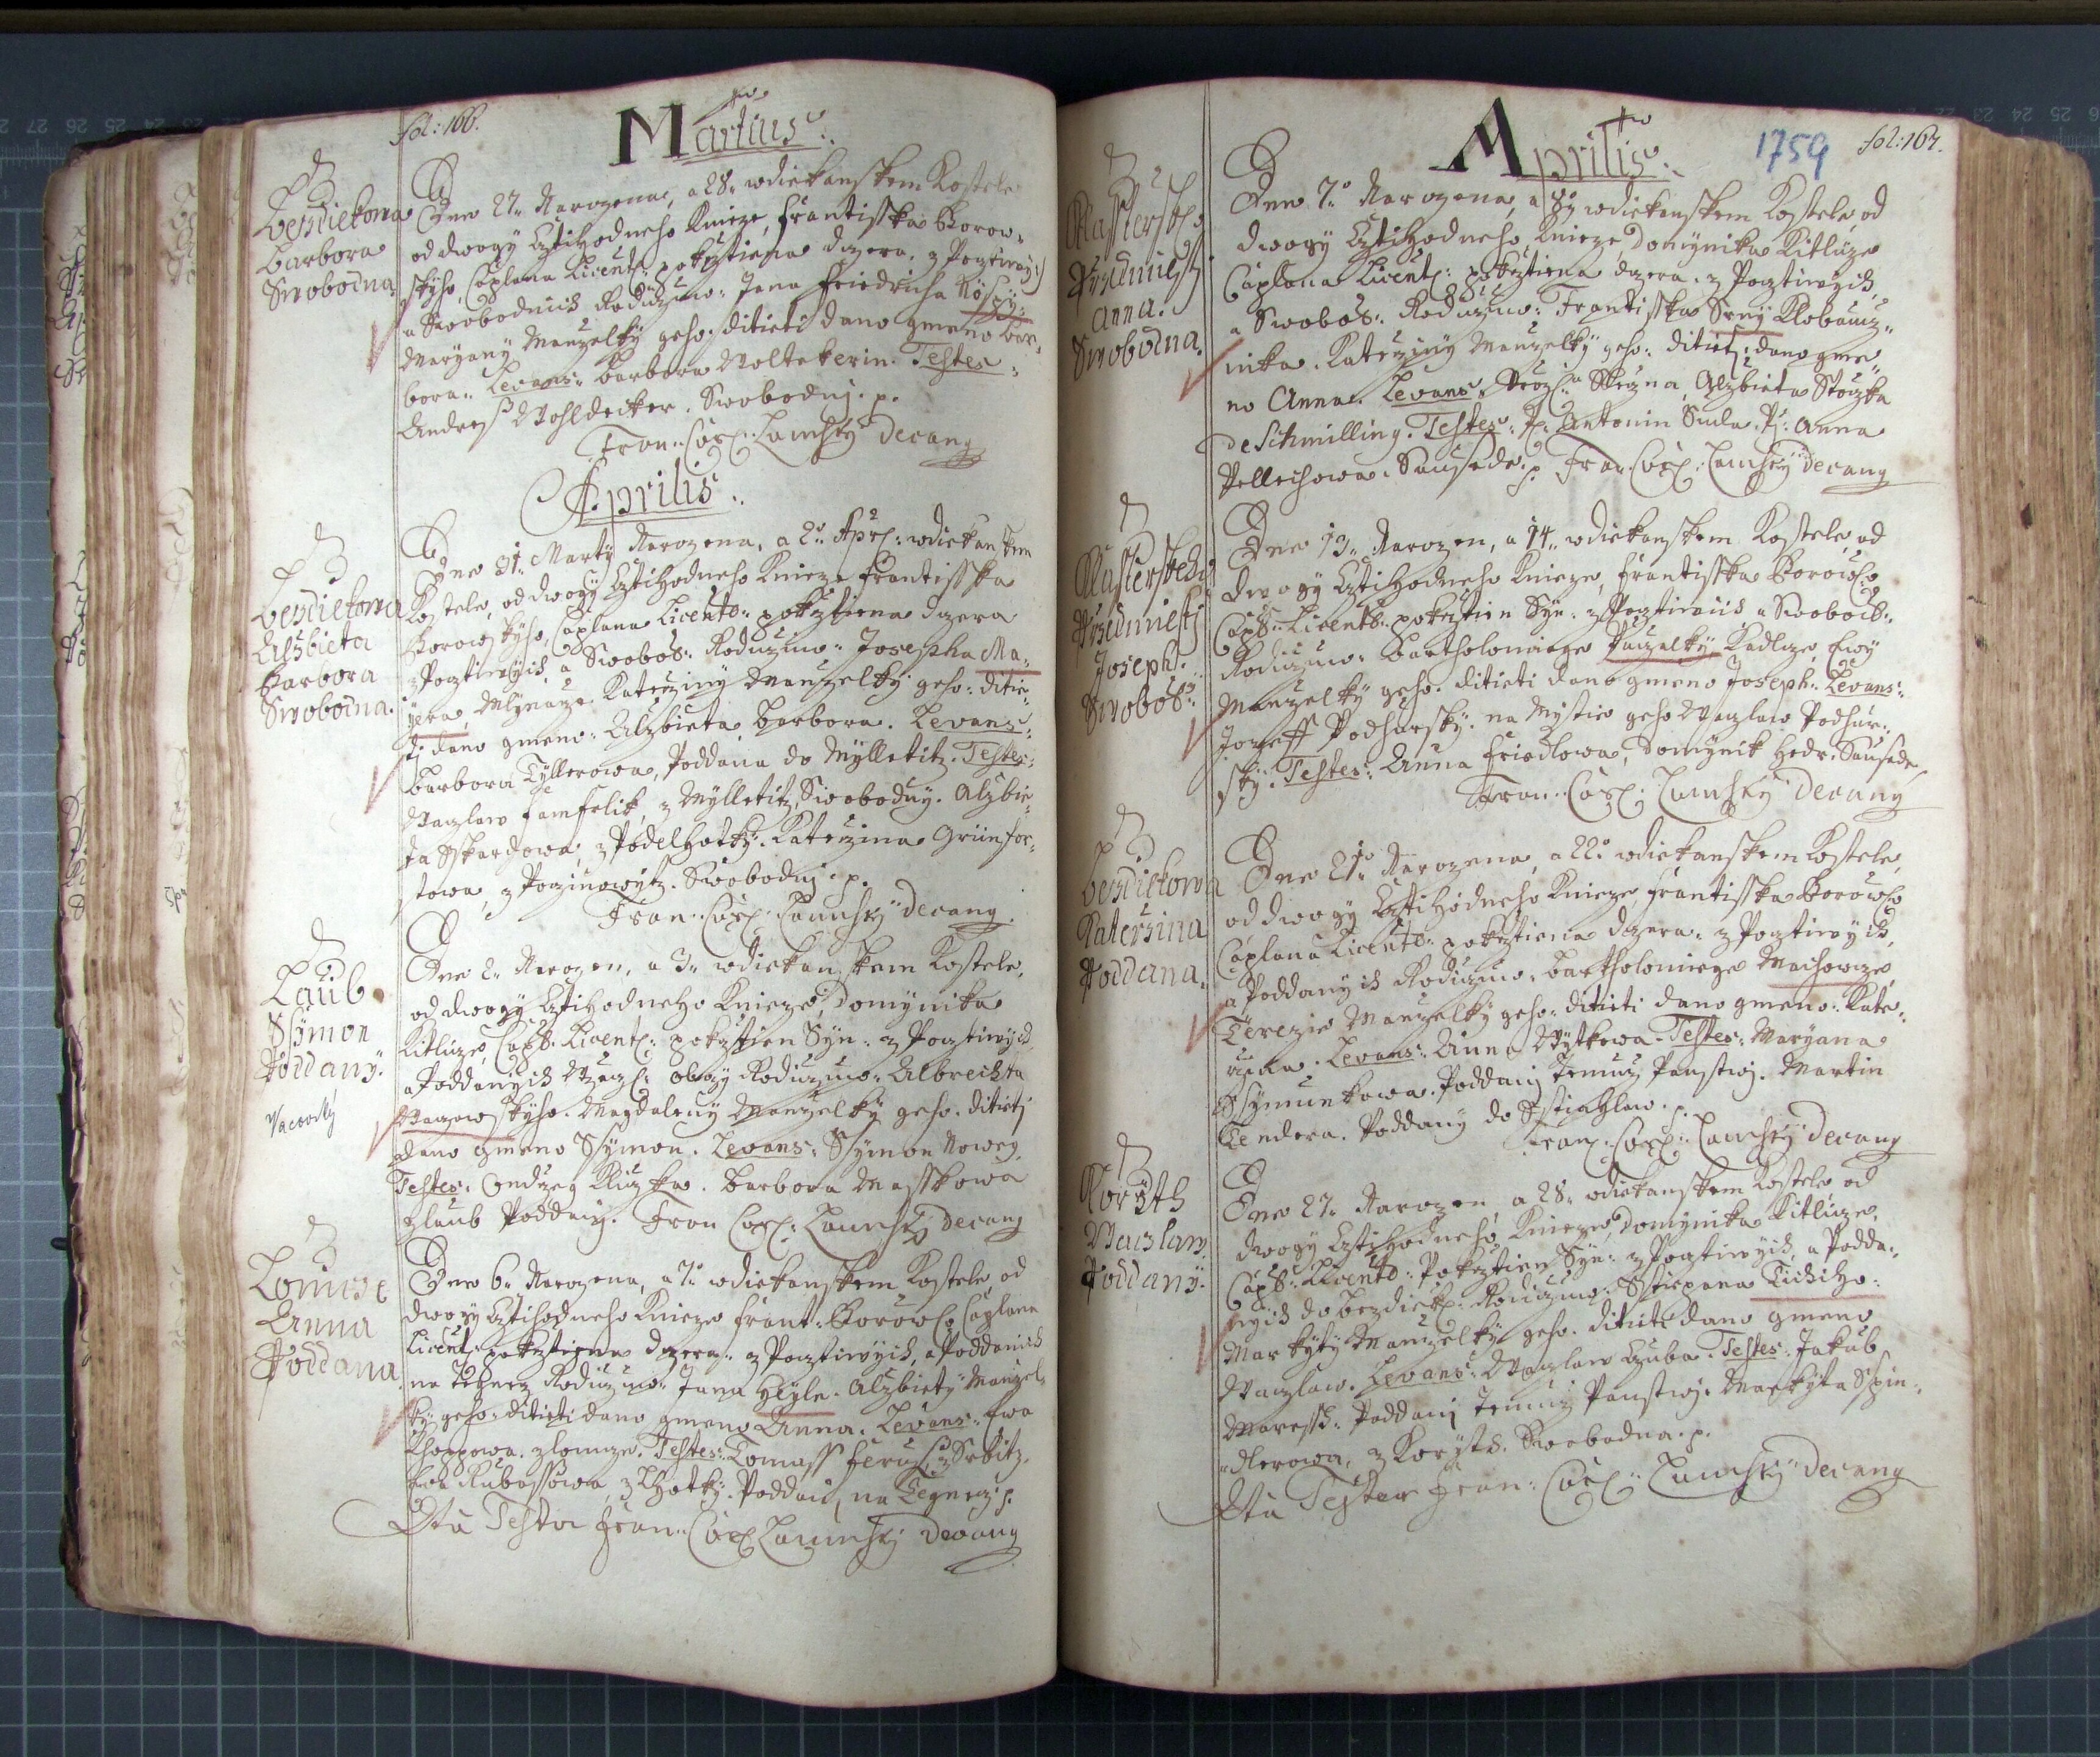 fol: 166.
Martius
Bezdiekowa
Barbora
Swobodna
Dne 27. Narozena, a 28. wdiekanskem Kostele
od dwogy Cztihodneho Knieze, Frantisska Borow-
skyho, Caplana Licent: pokrztiena dczera, z Pocztiwy:
a Swobodnich Rodiczuw: Jana Friedricha
Maryany Manzelky geho. ditieti dano gmeno Bar-
bora. Levans: Barbora Woltekerin. Testes:
Andreß Wohldecker. Swobodni. p.
Fran: Car: Laumsky Decang
Aprilis
Bezdiekowa
Alzbieta
Barbora
Swobodna.
Dne 31. Marty Narozena, a 2. Apr: wdiekanskem
Kostele, od dwogy Cztihodneho Knieze Frantisska
Borowskyho, Caplana Licento: pokrztiena dczera
z Pocztiwych, a Swobod: Rodiczuw: Josepha Ma-
yera, Mlynarze Katerziny Manzelky geho: ditie-
ti dano gmeno: Alzbieta Barbora. Levans:
Barbora Tyllerowa, Poddana do Mylletitz. Testes:
Waczlaw Famfelik, z Mylletitz, Swobodny. Alzbie-
ta Sskardowa, z Podelhotky. Katerzina Grünfor-
towa, z Poczinowytz. Swobodni. p.
Fran: Car: Laumsky Decang
Laub
Ssymon
Poddany.
Vacovský
Dne 2. Narozen, a 3. wdiekanskem Kostele,
od dwogy Cztihodneho Knieze, Domynika
Kitlicze, Capl. Licent: pokrztien Syn: z Pocztiwych
a Poddanych obogy Rodiczuw: Albrechta
Waczowskyho. Magdaleny Manzelky geho. ditieti
dano gmeno Ssymon. Levans: Ssymon Noweg.
Testes: Ondrzeg Kliczka. Barbora Masskowa
z Laub Poddani. Fran Car: Laumsky Decang
Lomicze
Anna
Poddana
Dne 6. Narozena, a 7. wdiekanskem Kostele od
dwogy Cztihodneho Knieze Frant: Borow: Caplana
Licent: pokrztiena dczera: z Pocztiwych, a Poddanich
na Tegnecz Rodiczuw: Jana Heyla. Alzbiety Manzel-
ky geho: ditieti dano gmeno Anna. Levans: Ewa
z Lomicze. Testes: Tomass Feruß, z Srbitz.
Ewa Kubassowa, z Lhotky. Poddani, na Tegnecz. p.
Ita Testor Fran: Car: Laumsky Decang
Aprilis
1759
fol: 167.
Klasterske
Przedmiesti
Anna.
Swobodna.
Dne 7. Narozena, a 8. wdiekanskem Kostele, od
dwogy Cztihodneho Knieze, Domynika Kitlicze
Caplana Licent: pokrztiena dczera: z Pocztiwych,
a Swobod: Rodiczuw: Frantisska Srny Klobaucz-
nika. Katerziny Manzelky geho: ditieti dano gme-
no Anna. Levans: Alzbieta
de Schmilling. Testes: P: Antonin Suda. P: Anna
Pellechowa. Sausede. p. Fran: Car: Laumsky Decang
Klasterskeho
Przedmiesti
Joseph.
Swobod:
Dne 13. Narozen, a 14. wdiekanskem Kostele, od
dwogy Cztihodneho Knieze, Frantisska Borow:
Capl: Licento: pokrztien Syn: z Pocztiwich, a Swobod:
Rodiczuw: Bartholomiege Kadlcze, Ewy
Manzelky geho. ditieti dano gmeno Joseph. Levans:
Jozeff Podhorsky. na Mistie geho Waczlaw Podhor-
sky. Testes: Anna Friedlowa, Domynik Hedr. Sausede
Fran: Car: Laumsky Decang
Bezdiekowa
Katerzina
Poddana.
Dne 21. Narozena, a 22. wdiekanskem Kostele,
od dwogy Cztihodneho Knieze, Frantisska Borow:
Caplana Licento: pokrztiena dczera: z Pocztiwych,
a Poddanych Rodiczuw: Bartholomiege Machowcze,
Terezie Manzelky geho: ditieti dano gmeno: Kate-
rzina. Levans: Anna Wytkowa. Testes: Maryana
Ssymunkowa. Poddani Panstwi. Martin
Tendera. Poddany do Stiahlaw. p.
Fran: Car: Laumsky Decang
Koryth
Waczlaw.
Poddany.
Dne 27. Narozen, a 28. wdiekanskem Kostele, od
dwogy Cztihodneho Knieze, Domynika Kitlicze,
Capl: Licento: Pokrztien Syn: z Pocztiwych, a Podda-
nych do Bezdiek: Rodiczuw: Sstiepana Tichiho.
Markyty Manzelky geho. ditieti dano gmeno
Waczlaw. Levans: Waczlaw Czuba. Testes: Jakub
Maressh: Poddani Panstwi. Markyta Spin-
dlerowa, z Koryth. Swobodna. p.
Ita Testor Fran: Car: Laumsky Decang